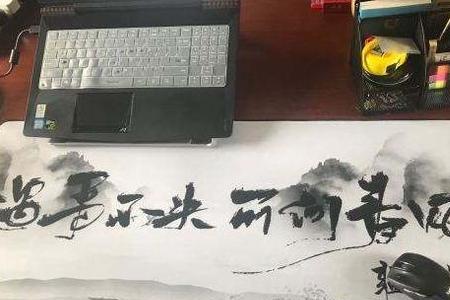 遇事不决 可问春风